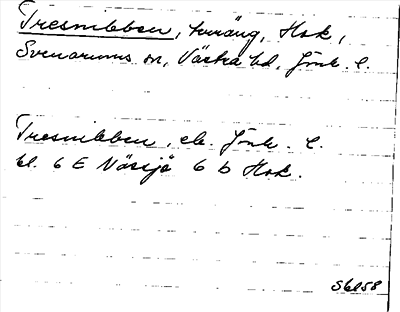 Tresnibben, terräng, Hok,
Svenarums sn, Västra hd, Jönk. l.
Tresnibben, ek. Jönk. l.
bl. 6 E Nässjö 6 b Hok.
S6l58